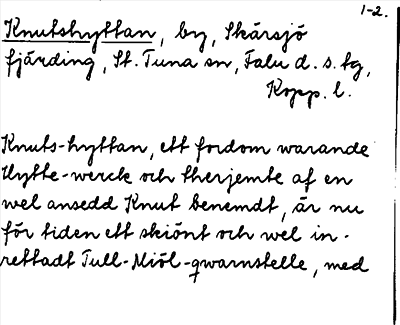 1-2.
Knutshyttan, by, Skärsjö
fjärding, St. Tuna sn, Falu d. s. tg,
Kopp. l.
Knuts-hyttan, ett fordom warande
Hytte-werck och therjemte af en
wel ansedd Knut benemdt, är nu
för tiden ett skiönt och wel in-
rettadt Tull-Miöl-qwarnstelle, med